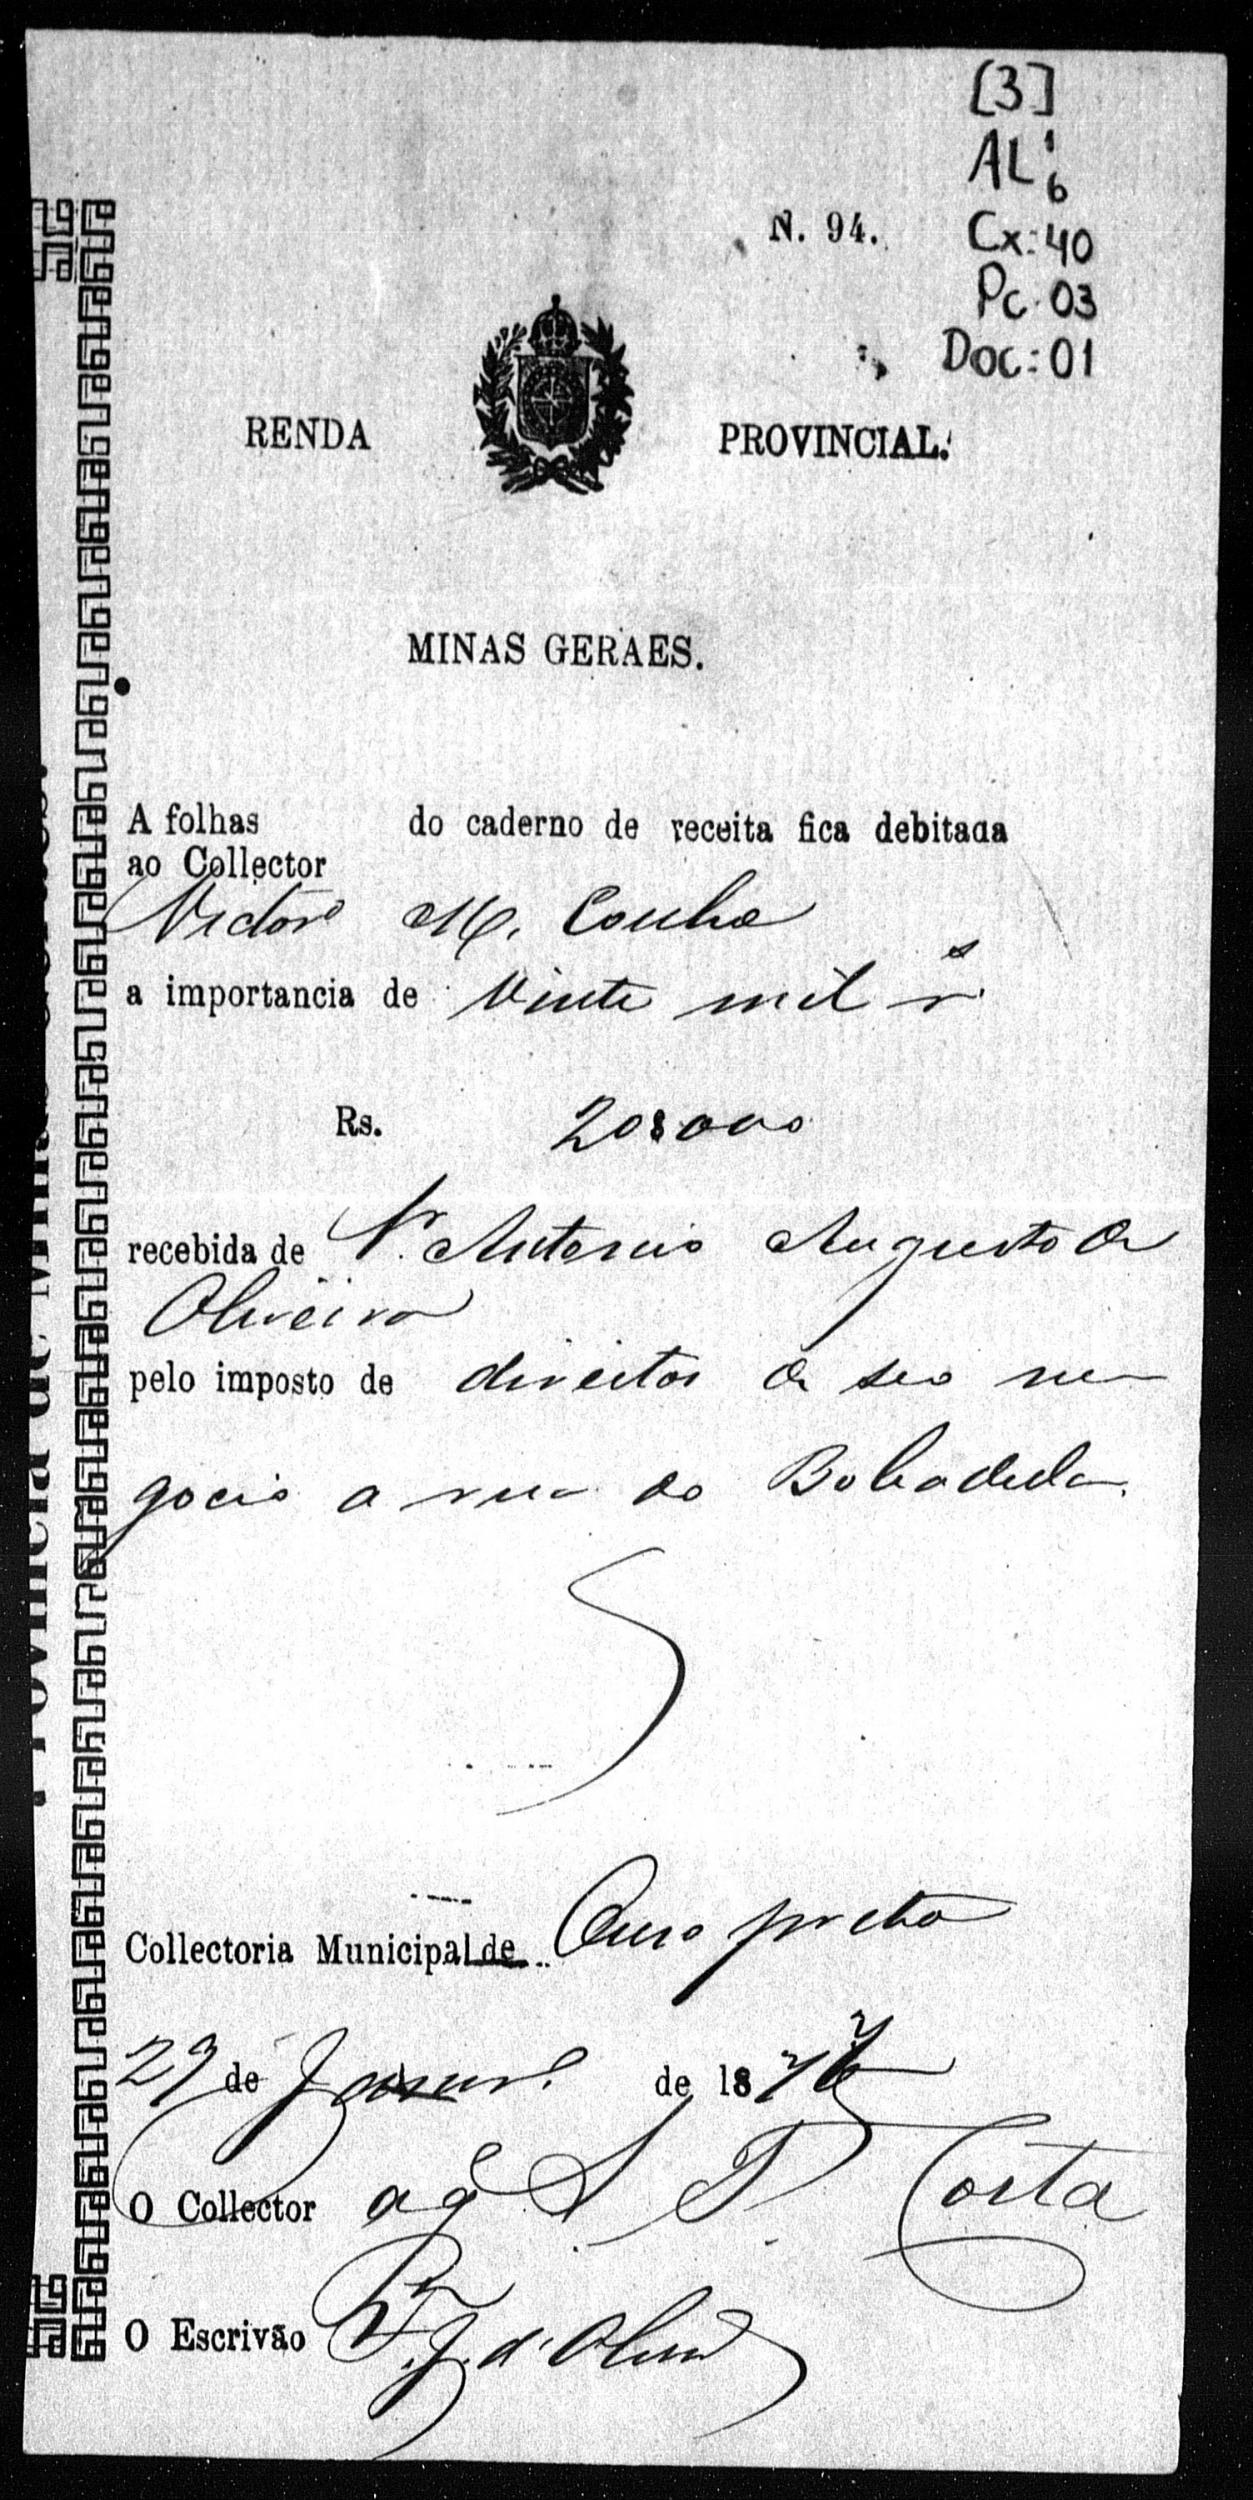 [3]
AL 1 6
N. 94.
Cx: 40
Pc. 03
Doc: 01
RENDA PROVINCIAL.
MINAS GERAES.
A folhas do caderno de receita fica debitada
ao Collector
Victor M. Cunha
a importancia de vinte mil rs
Rs. 20$000
recebida de Antonio Augusto de
Oliveira
pelo imposto de direitos de seo ne-
gocio a rua do Bobadela.
Collectoria Municipal de Ouro preto
29 de Janro. de 1876
O Collector S P Costa
O Escrivão F. J. d'Olivra
Provincia de Minas